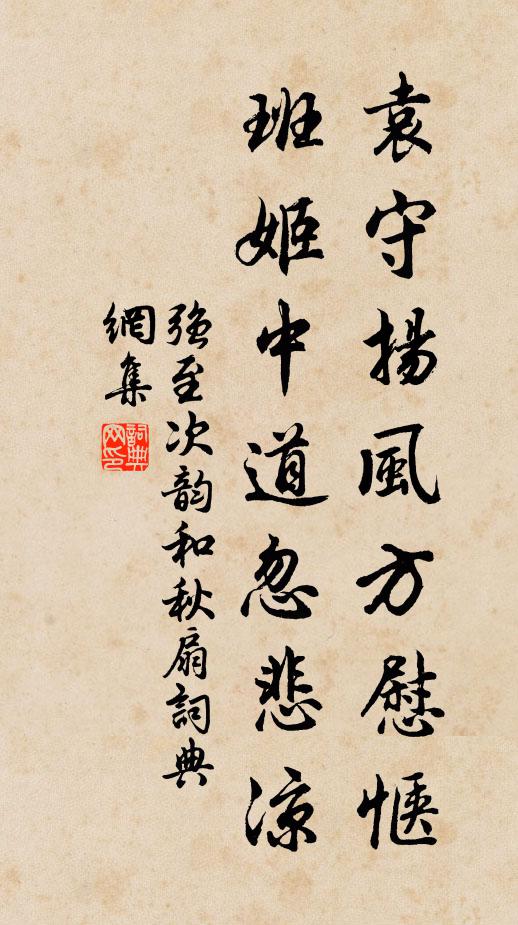 袁守揚風方慰惬
班姬中道忽悲凉
強至次韵和秋扇詞典
網集
詞典網印